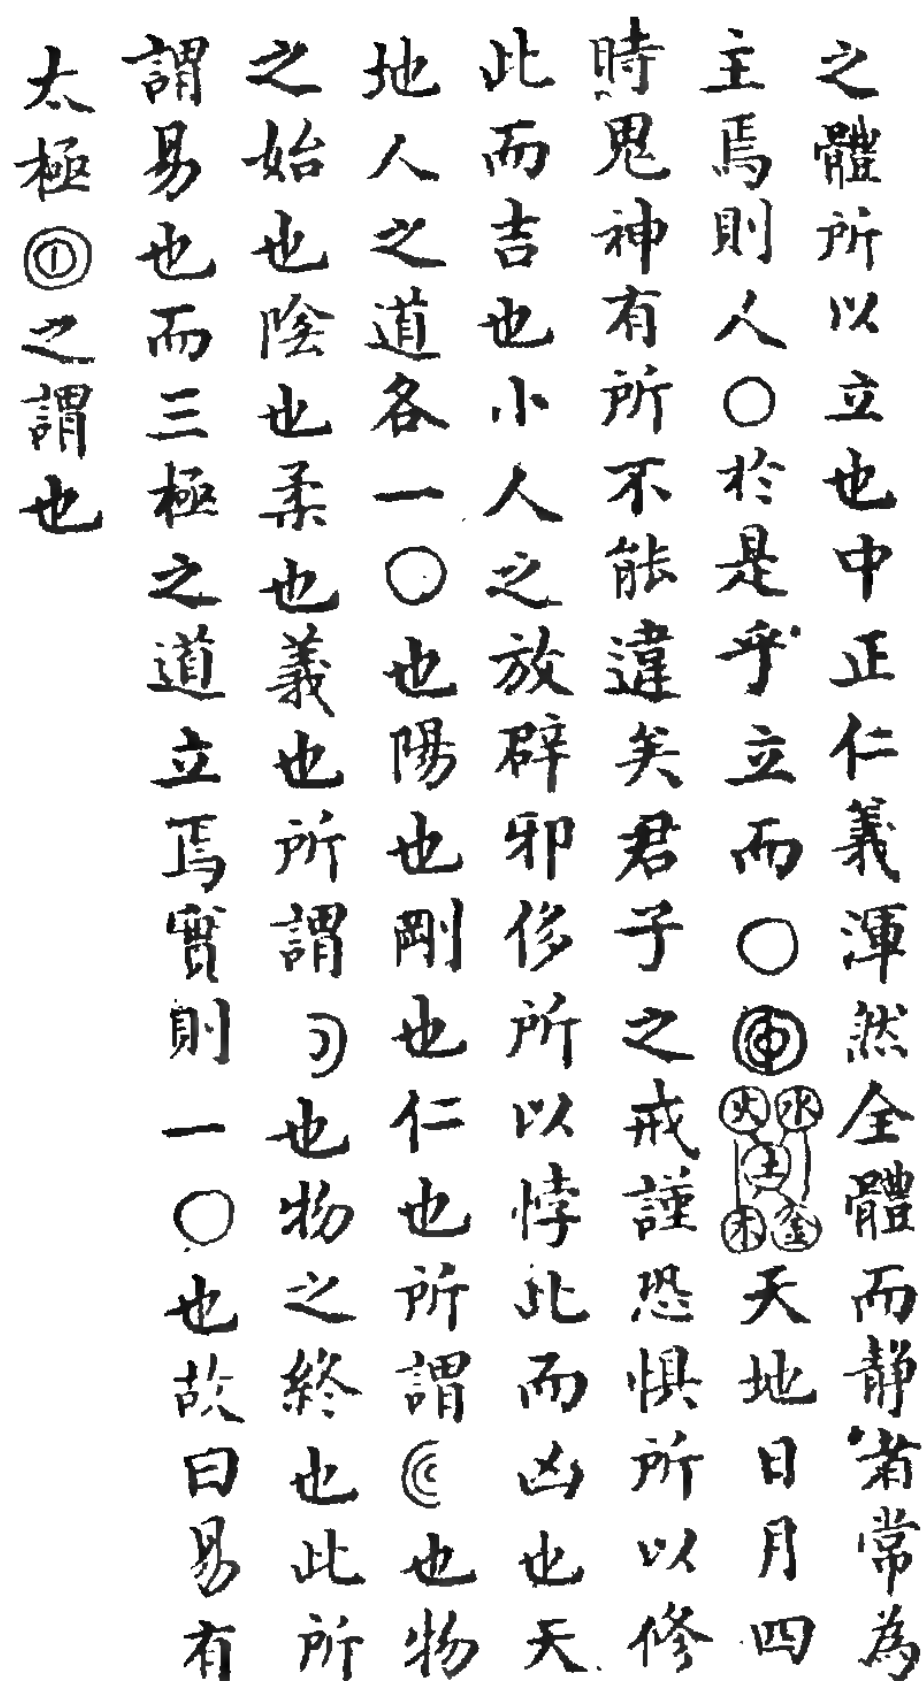 之體所以立也中正仁義渾然全體而靜者常為
主焉則人○於是乎立而○◎火水土木金天地日月四
時鬼神有所不能違矣君子之戒謹恐惧所以修
此而吉也小人之放辟邪侈所以悖此而凶也天
地人之道各一○也陽也剛也仁也所謂也物
之始也陰也柔也義也所謂也物之終也此所
謂易也而三極之道立焉實則一○也故曰易有
太極◎之謂也